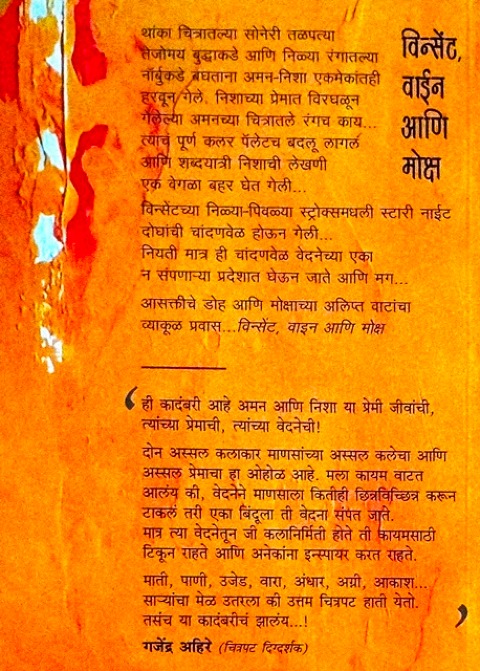 विन्सेंट,
वाईन
आणि
मोक्ष
थांका चित्रातल्या सोनेरी तळपत्या
तेजोमय बुद्धाकडे आणि निळ्या रंगातल्या
नॉर्बुकडे बघताना अमन-निशा एकमेकांतही
हरवून गेले. निशाच्या प्रेमात विरघळून
गेलेल्या अमनच्या चित्रातले रंगच काय...
त्याचं पूर्ण कलर पॅलेटच बदलू लागलं
आणि शब्दयात्री निशाची लेखणी
एक वेगळा बहर घेत गेली...
विन्सेंटच्या निळ्या-पिवळ्या स्ट्रोक्समधली स्टारी नाईट
दोघांची चांदणवेळ होऊन गेली...
नियती मात्र ही चांदणवेळ वेदनेच्या एका
न संपणाऱ्या प्रदेशात घेऊन जाते आणि मग...
आसक्तीचे डोह आणि मोक्षाच्या अलिप्त वाटांचा
व्याकूळ प्रवास...विन्सेंट, वाइन आणि मोक्ष
‘ ही कादंबरी आहे अमन आणि निशा या प्रेमी जीवांची,
त्यांच्या प्रेमाची, त्यांच्या वेदनेची!
दोन अस्सल कलाकार माणसांच्या अस्सल कलेचा आणि
अस्सल प्रेमाचा हा ओहोळ आहे. मला कायम वाटत
आलंय की, वेदनेने माणसाला कितीही छिन्नविच्छिन्न करून
टाकलं तरी एका बिंदूला ती वेदना संपत जाते.
मात्र त्या वेदनेतून जी कलानिर्मिती होते ती कायमसाठी
टिकून राहते आणि अनेकांना इन्स्पायर करत राहते.
माती, पाणी, उजेड, वारा, अंधार, अग्नी, आकाश...
साऱ्यांचा मेळ उतरला की उत्तम चित्रपट हाती येतो.
तसंच या कादंबरीचं झालंय...! ’
गजेंद्र अहिरे (चित्रपट दिग्दर्शक)